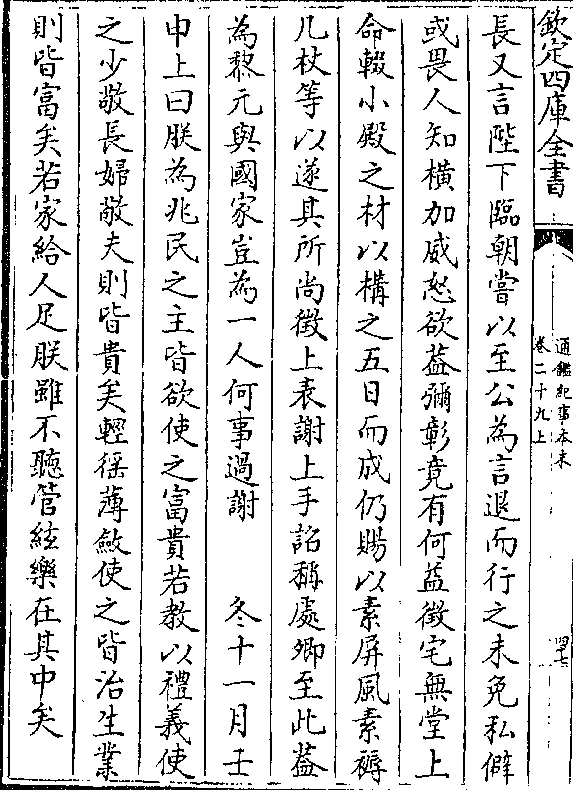 欽定四庫全書
通鑑紀事本末
卷二十九上
四十七
長又言陛下臨朝嘗以至公為言退而行之未免私僻
或畏人知橫加威怒欲葢彌彰竟有何益徵宅無堂上
命輟小殿之材以構之五日而成仍賜以素屏風素褥
几杖等以遂其所尚徵上表謝上手詔稱處卿至此葢
為黎元與國家豈為一人何事過謝　冬十一月壬
申上曰朕為兆民之主皆欲使之富貴若教以禮義使
之少敬長婦敬夫則皆貴矣輕徭薄斂使之皆治生業
則皆富矣若家給人足朕雖不聽管絃樂在其中矣